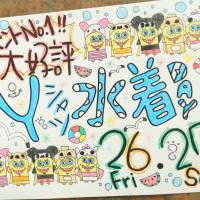 ントNo.1!!
大好評
Yシャツ水着DAY
26.2
Fri S